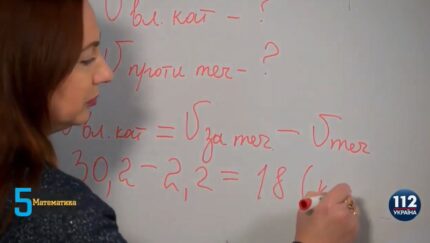 V вл. кат - ?
V проти теч - ?
V вл. кат = V за теч - V теч
30,2 - 2,2 = 18 (к
5 Математика
112
УКРАЇНА